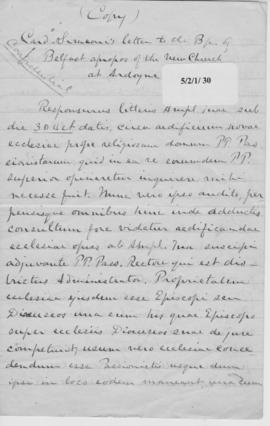 (Copy)
Card Simeoni's letter to the Bp. of
Belfast apropos of the new Church
at Ardoyne
Confidential
5/2/1/30
Responsurus litteris Ampl. tuae sub
die 30 Oct datis, circa aedificium novae
ecclesiae prope religiosam domum PP. Pas
sionistarum quid in ea re eorumdem PP.
superior opinaretur inquirere mihi
necesse fuit. Nunc vero ipso audito, per
pensisque omnibus hinc inde adductis
consultum fore videtur aedificandae
ecclesiae opus ab Ampl. tua suscipi
adjuvante PP. Pass. Rectore qui est dis
trictus Administrator. Proprietatem
ecclesiae ejusdem esse Episcopi seu
Dioceseos una cum his quae Episcopo
super ecclesiis Dioceseos suae de jure
competunt, usum vero ecclesiae conce
dendum esse Passionistis usque dum
ipsi in loco eodem maneant, una cum